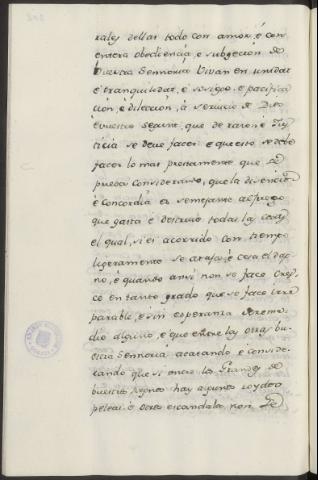 rales dellas todo con amor, é con
entera obediencia, e subgecion de
Vuestra Sennoria Vivan en unidat
é tranquilidat, e sosiego, e pacifica
cion, é dileccion, á servicio de Dios
é vuestro segunt que de razon é Jus
ticia se deve facer é que esto se debe
facer lo mas prestamente que se
pueda considerando, que la discencion
é concordia es semejante al fuego
que gasta é destruie todas las cosas
el qual, si es acorrido con tiempo
ligeramente se ataja, é cesa el dap
no, é quando ansi non se face cres
ce en tanto grado que se face irre
parable, é sin esperanza de reme
dio alguno, é que entre las otras bu
estra Sennoria, acatando é conside
rando que si entre los Grandes de
buestros Regnos hay algunos roydos
peleas é otros escandalos, non se